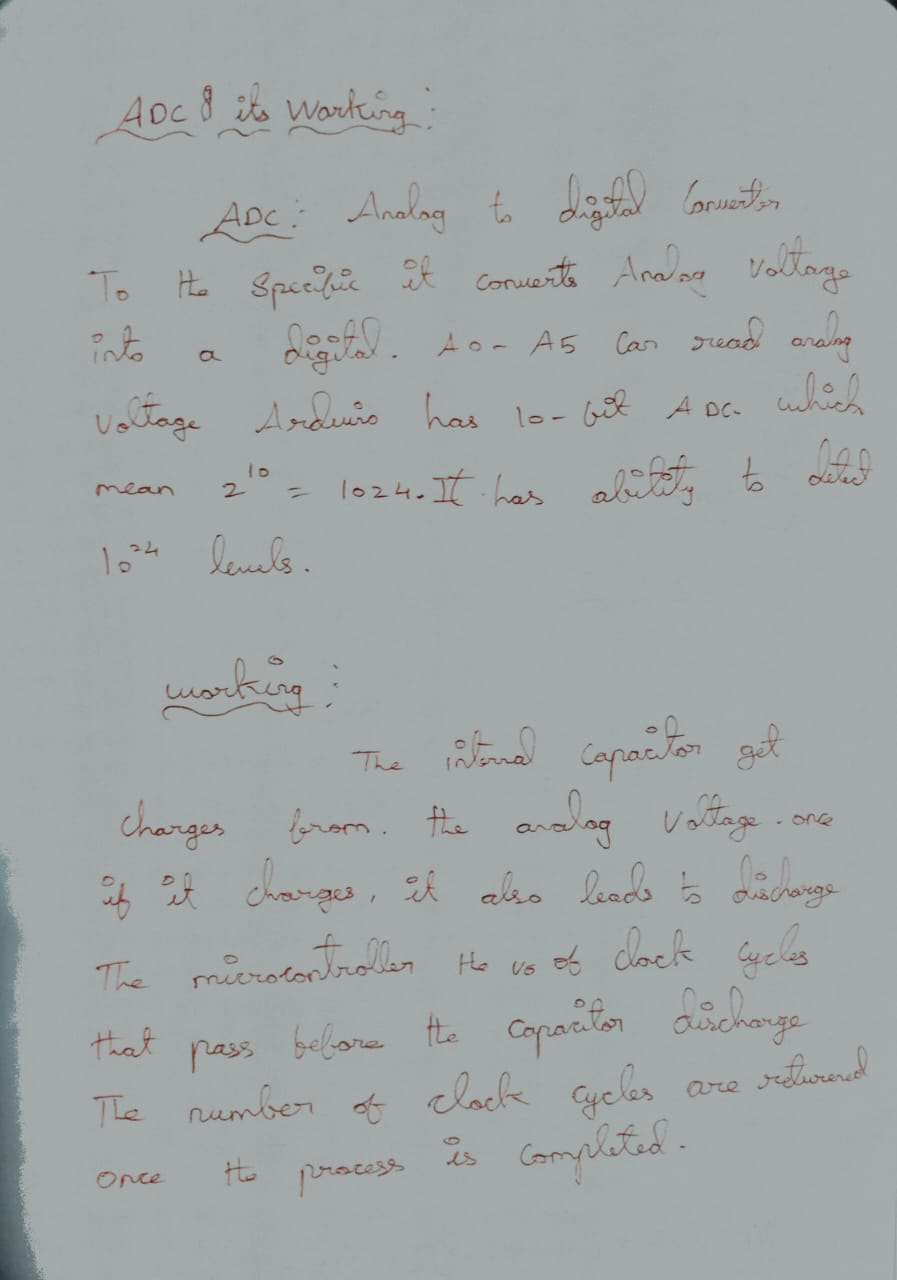 ADC & its Working:
ADC: Analog to digital Converter
To the Specific it converts Analog Voltage
into a digital. A0 - A5 Can read analog
Voltage Arduino has 10-bit ADC. which
mean 2¹⁰ = 1024. It has ability to detect
10²⁴ levels.
working:
The internal capacitor get
charges from. the analog Voltage. once
if it charges, it also leads to discharge
The microcontroller the of clock cycles
that pass before the capacitor discharge
The number of clock cycles are returened
once the process is completed.